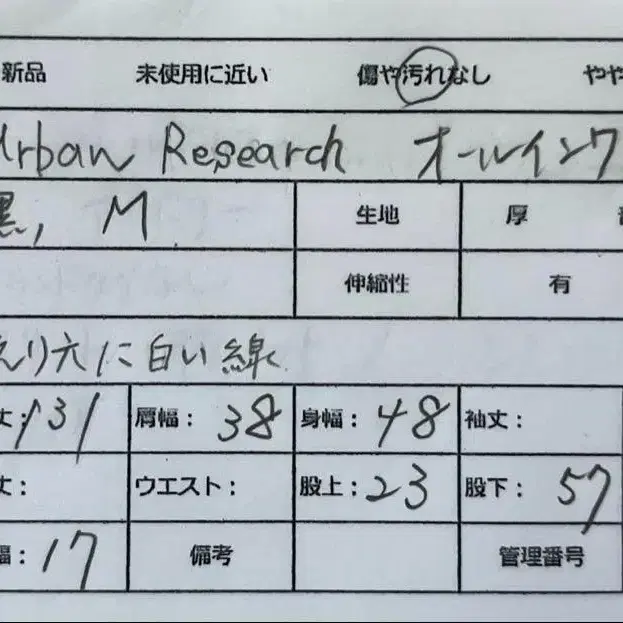 新品 未使用に近い 傷や汚れなし やや
Urban Research オールインワ
黒, M 生地 厚
伸縮性 有
えり穴に白い線
丈: 131 肩幅: 38 身幅: 48 袖丈:
丈: ウエスト: 股上: 23 股下: 57
幅: 17 備考 管理番号